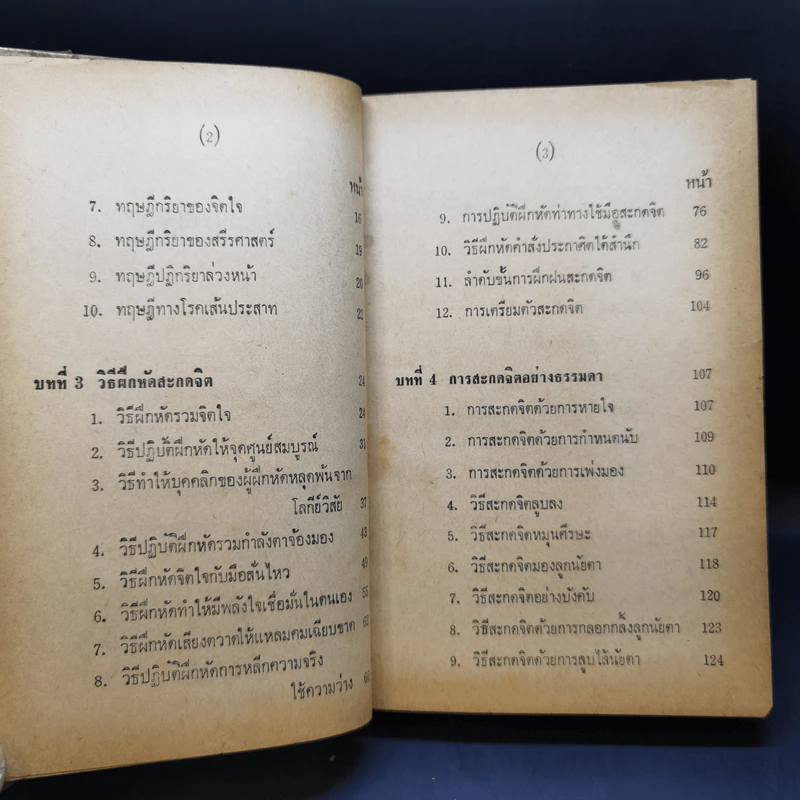 (2)
หน้า
7. ทฤษฎีกริยาของจิตใจ 16
8. ทฤษฎีกริยาของสรีรศาสตร์ 19
9. ทฤษฎีปฏิกริยาล่วงหน้า 20
10. ทฤษฎีทางโรคเส้นประสาท 22
บทที่ 3 วิธีฝึกหัดสะกดจิต 24
1. วิธีฝึกหัดรวมจิตใจ 24
2. วิธีปฏิบัติฝึกหัดให้จุดศูนย์สมบูรณ์ 31
3. วิธีทำให้บุคคลิกของผู้ฝึกหัดหลุดพ้นจาก
โลกีย์วิสัย 37
4. วิธีปฏิบัติฝึกหัดรวมกำลังตาจ้องมอง 43
5. วิธีฝึกหัดจิตใจกับมือสั่นไหว 49
6. วิธีฝึกหัดทำให้มีพลังใจเชื่อมั่นในตนเอง 55
7. วิธีฝึกหัดเสียงตวาดให้แหลมคมเฉียบขาด
8. วิธีปฏิบัติฝึกหัดการหลีกความจริง
ใช้ความว่าง
(3)
หน้า
9. การปฏิบัติฝึกหัดท่าทางใช้มือสะกดจิต 76
10. วิธีฝึกหัดคำสั่งประกาศิตใต้สำนึก 82
11. ลำดับขั้นการฝึกฝนสะกดจิต 96
12. การเตรียมตัวสะกดจิต 104
บทที่ 4 การสะกดจิตอย่างธรรมดา 107
1. การสะกดจิตด้วยการหายใจ 107
2. การสะกดจิตด้วยการกำหนดนับ 109
3. การสะกดจิตด้วยการเพ่งมอง 110
4. วิธีสะกดจิตลูบลง 114
5. วิธีสะกดจิตหมุนศีรษะ 117
6. วิธีสะกดจิตมองลูกนัยตา 118
7. วิธีสะกดจิตอย่างบังคับ 120
8. วิธีสะกดจิตด้วยการกลอกกลิ้งลูกนัยตา 123
9. วิธีสะกดจิตด้วยการลูบไล้นัยตา 124